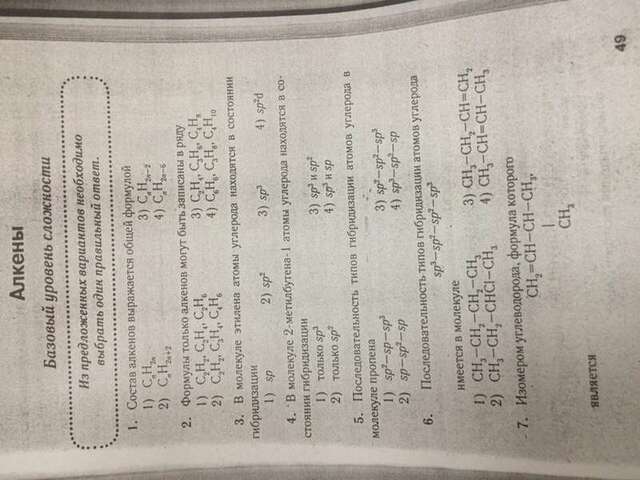 Алкены
Базовый уровень сложности
Из предложенных вариантов необходимо
выбрать один правильный ответ.
1. Состав алкенов выражается общей формулой
1) CₙH₂ₙ 3) CₙH₂ₙ₋₂
2) CₙH₂ₙ₊₂ 4) CₙH₂ₙ₋₆
2. Формулы только алкенов могут быть записаны в ряду
1) C₂H₂, C₂H₄, C₂H₆ 3) C₂H₄, C₃H₆, C₄H₈
2) 4) C₆H₆, C₃H₈, C₄H₁₀
3. В молекуле этилена атомы углерода находятся в состоянии
гибридизации
1) sp 2) sp² 3) sp³ 4) sp²d
4. В молекуле 2-метилбутена-1 атомы углерода находятся в со-
стоянии гибридизации
1) только sp³ 3) sp³ и sp²
2) только sp² 4) sp³ и sp
5. Последовательность типов гибридизации атомов углерода в
молекуле пропена
1) sp²—sp—sp 3) sp²—sp²—sp³
2) sp—sp²—sp 4) sp³—sp³—sp
6. Последовательность типов гибридизации атомов углерода
sp³—sp²—sp²—sp³
имеется в молекуле
1) CH₃—CH₂—CH₂—CH₃ 3) CH₃—CH₂—CH=CH₂
2) CH₃—CH₂—CHCl—CH₃ 4) CH₃—CH=CH—CH₃
7. Изомером углеводорода, формула которого
CH₂=CH—CH—CH₃,
|
CH₃
является
49